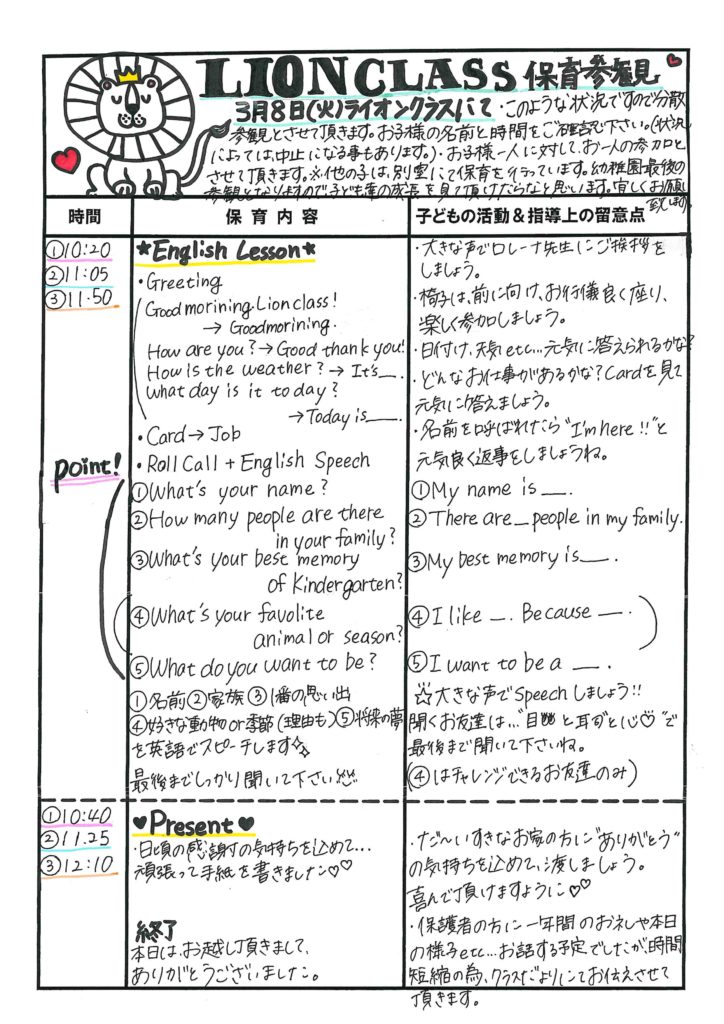 LION CLASS 保育参観
3月8日(火)ライオンクラスにて・このような状況ですので分散
参観とさせて頂きます。お子様の名前と時間をご確認下さい。(状況
によっては中止になる事もあります。)・お子様一人に対して、お一人の参加と
させて頂きます。※他の子は、別室にて保育を行っています。幼稚園最後の
参観となりますので子ども達の成長を見て頂けたらなと思います。宜しくお願い
致します。
時間
保育内容
子どもの活動&指導上の留意点
①10:20
②11:05
③11.50
*English Lesson*
・Greeting
Good morining. Lion class!
→ Good morning.
How are you? → Good thank you!
How is the weather? → It's__.
What day is it today?
→ Today is__.
・Card → Job
・Roll Call + English Speech
point!
①What's your name?
②How many people are there
in your family?
③What's your best memory
of Kindergarten?
④What's your favolite
animal or season?
⑤What do you want to be?
①名前②家族③1番の思い出
④好きな動物or季節(理由も)⑤将来の夢
を英語でスピーチします
最後までしっかり聞いて下さい
・大きな声でロレーナ先生にご挨拶を
しましょう。
・椅子は、前に向け、お行儀良く座り、
楽しく参加しましょう。
・日付け、天気etc...元気に答えられるかな?
・どんなお仕事があるかな?Cardを見て
元気に答えましょう。
・名前を呼ばれたら"I'm here!!"と
元気良く返事をしましょうね。
①My name is __.
②There are _ people in my family.
③My best memory is __.
④I like _. Because __.
⑤I want to be a __.
☆大きな声でSpeechしましょう!!
聞くお友達は…"目と耳と心♡"で
最後まで聞いて下さいね。
(④はチャレンジできるお友達のみ)
①10:40
②11.25
③12:10
♥Present♥
・日頃の感謝の気持ちを込めて…
頑張って手紙を書きました♡♡
終了
本日は、お越し頂きまして、
ありがとうございました。
・だ〜いすきなお家の方に"ありがとう"
の気持ちを込めて、渡しましょう。
喜んで頂けますように♡♡
・保護者の方に一年間のお礼や本日
の様子etc...お話する予定でしたが、時間
短縮の為、クラスだよりにてお伝えさせて
頂きます。